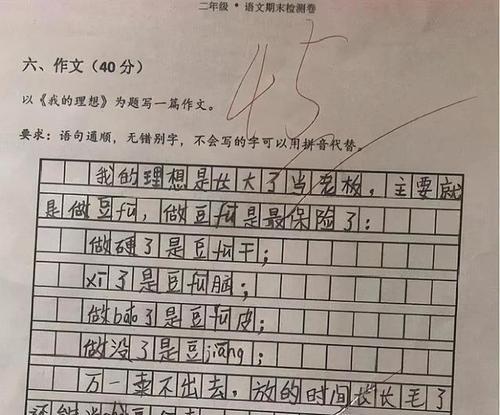 二年级·语文期末检测卷
45
六、作文（40分）
以《我的理想》为题写一篇作文。
要求：语句通顺，无错别字，不会写的字可以用拼音代替。
我的理想是长大了当老板，主要就
是做豆fǔ，做豆fǔ是最保险了：
做硬了是豆fǔ干；
xī了是豆fǔ脑；
做báo了是豆fǔ皮；
做没了是豆jiāng；
万一卖不出去，放的时间长长毛了